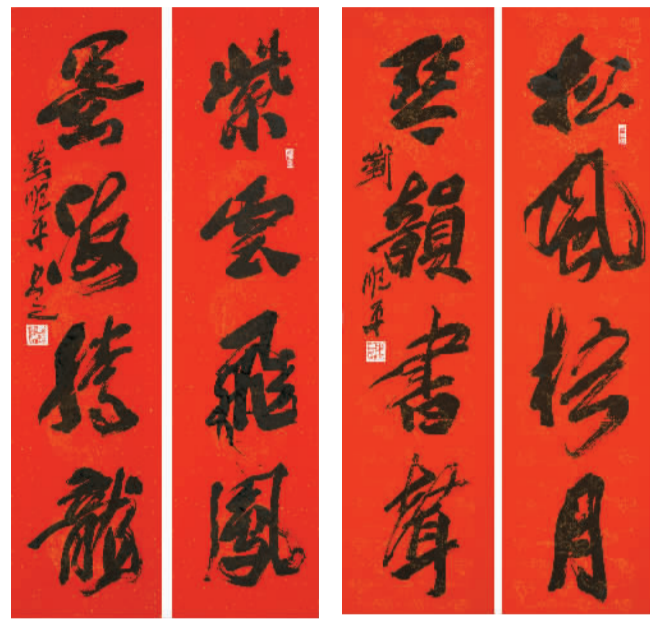 松風梧月
琴韻書聲
劉 平
紫雲飛鳳
墨海騰龍
平 書之